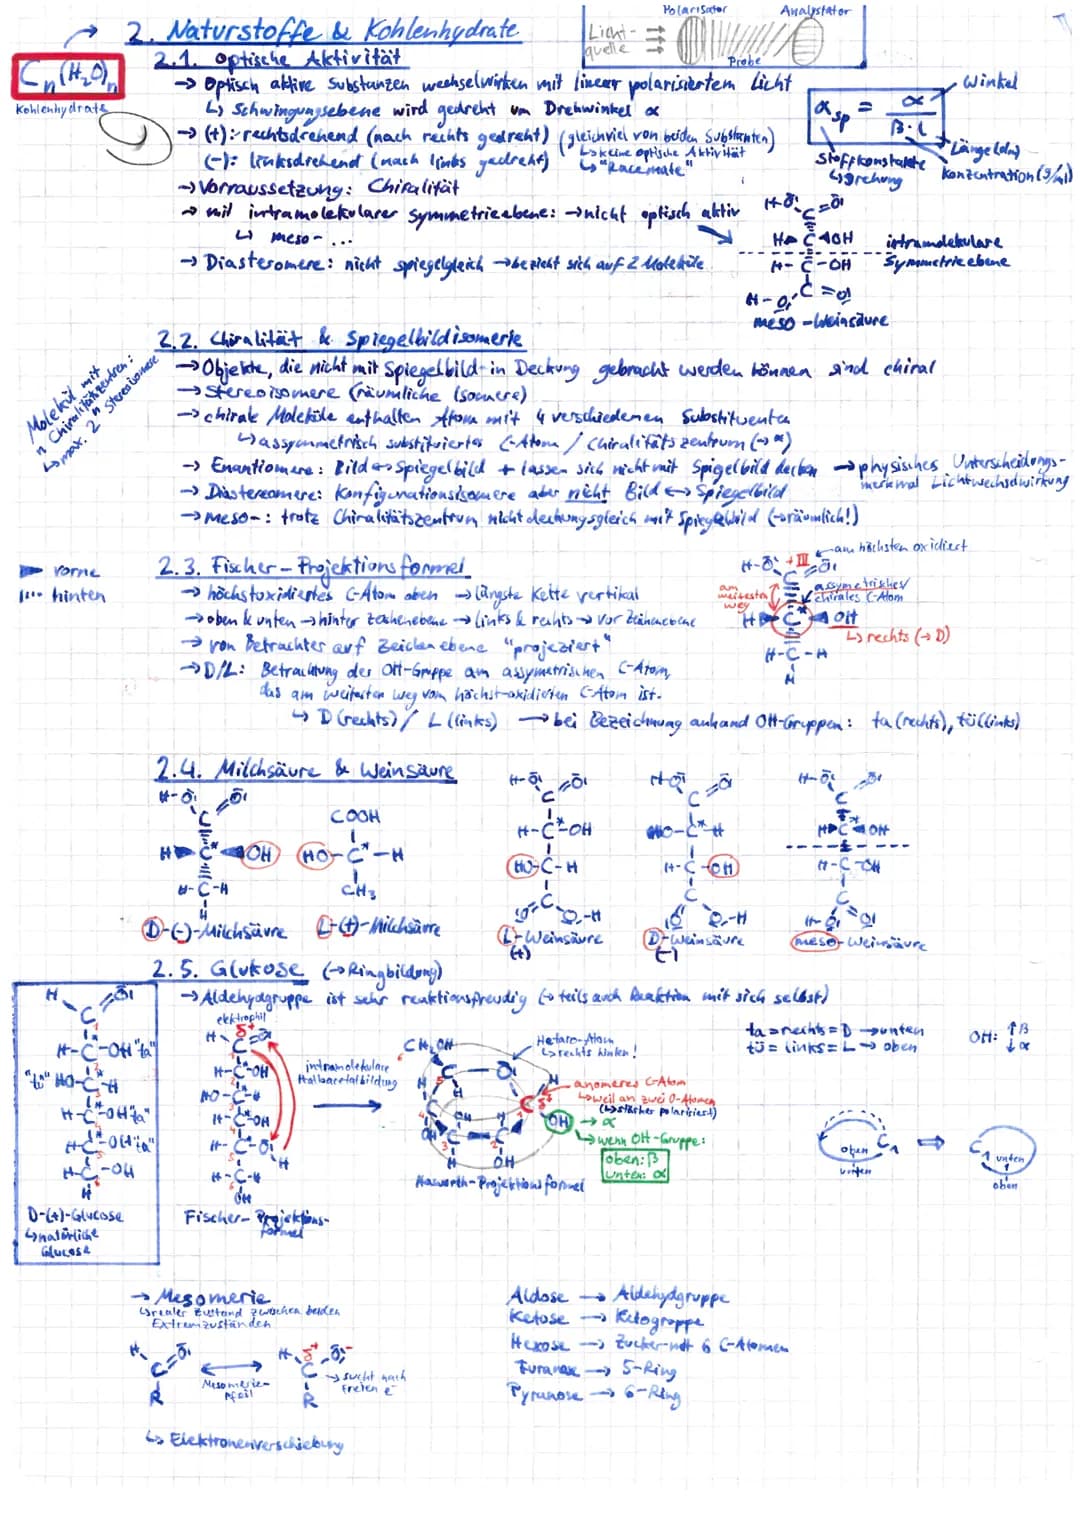 2. Naturstoffe & Kohlenhydrate
Polarisator Analysator
Licht-
quelle
Probe
Cn(H2O)n
Kohlenhydrate
2.1. Optische Aktivität
→ Optisch aktive Substanzen wechselwirken mit linear polarisiertem Licht
↳ Schwingungsebene wird gedreht um Drehwinkel α
→ (+): rechtsdrehend (nach rechts gedreht) (gleichviel von beiden Substanzen)
(-): linksdrehend (nach links gedreht) ↳ keine optische Aktivität
↳ "Racemate"
→ Vorraussetzung: Chiralität
→ mit intramolekularer Symmetrieebene: → nicht optisch aktiv
↳ meso-...
→ Diasteromere: nicht spiegelgleich → bezieht sich auf 2 Moleküle
Winkel
αsp = α / β·l
Länge (dm)
Konzentration (g/ml)
Stoffkonstante
↳ drehung
H-O O
C
H C OH
H-C-OH
C
H-O =O
intramolekulare
Symmetrieebene
meso-Weinsäure
2.2. Chiralität & Spiegelbildisomerie
→ Objekte, die nicht mit Spiegelbild in Deckung gebracht werden können sind chiral
→ Stereoisomere (räumliche Isomere)
→ chirale Moleküle enthalten Atom mit 4 verschiedenen Substituenten
↳ assymmetrisch substituiertes C-Atom / Chiralitätszentrum (→ *)
→ Enantiomere: Bild ↔ Spiegelbild + lassen sich nicht mit Spiegelbild decken → physisches Unterscheidungs-
merkmal Lichtwechselwirkung
→ Diastereomere: Konfigurationsisomere aber nicht Bild ↔ Spiegelbild
→ meso-: trotz Chiralitätszentrum nicht deckungsgleich mit Spiegelbild (→ räumlich!)
Molekül mit
n Chiralitätszentren:
↳ max. 2^n Stereoisomere
2.3. Fischer-Projektionsformel
vorne
hinten
→ höchstoxidiertes C-Atom oben → längste Kette vertikal
→ oben & unten → hinter Zeichenebene → links & rechts → vor Zeichenebene
→ von Betrachter auf Zeichenebene "projeziert"
→ D/L: Betrachtung der OH-Gruppe am assymetrischen C-Atom,
das am weitesten weg vom höchst-oxidierten C-Atom ist.
↳ D (rechts) / L (links) → bei Bezeichnung anhand OH-Gruppen: ta (rechts), tü (links)
am höchsten oxidiert
H-O +III O
C
am
weitesten
weg
assymetrisches/
chirales C-Atom
H C* OH
↳ rechts (→ D)
H-C-H
H
2.4. Milchsäure & Weinsäure
H-O O
C
H C* OH
H-C-H
H
D-(-)-Milchsäure
COOH
HO-C*-H
CH3
L-(+)-Milchsäure
H-O O
C
H-C*-OH
HO-C-H
C
O O-H
L-Weinsäure
(+)
H-O O
C
HO-C*-H
H-C-OH
C
O O-H
D-Weinsäure
(-)
H-O O
C
H C* OH
H-C-OH
C
H-O O
meso-Weinsäure
2.5. Glukose (→ Ringbildung)
→ Aldehydgruppe ist sehr reaktionsfreudig (→ teils auch Reaktion mit sich selbst)
H O
C
H-C-OH "ta"
"tü" HO-C-H
H-C-OH "ta"
H-C-OH "ta"
H-C-OH
H
D-(+)-Glucose
↳ natürliche
Glucose
elektrophil
H δ+ O
C
H-C-OH
HO-C-H
H-C-OH
H-C-O
H
H-C-H
OH
Fischer-Projektions-
formel
intramolekulare
Halbacetalbildung
CH2OH
Hetero-Atom
↳ rechts hinten!
anomeres C-Atom
↳ weil an zwei O-Atomen
(↳ stärker polarisiert)
OH → α
↳ wenn OH-Gruppe:
oben: β
unten: α
Haworth-Projektionsformel
ta = rechts = D → unten
tü = links = L → oben
OH: ↑β
↓α
oben C1
unten
C1 unten
oben
→ Mesomerie
↳ realer Zustand zwischen beiden
Extremzuständen
H O
C
R
Mesomerie-
pfeil
H δ+ O-
C
R
→ sucht nach
freien e-
↳ Elektronenverschiebung
Aldose → Aldehydgruppe
Ketose → Ketogruppe
Hexose → Zucker mit 6 C-Atomen
Furanose → 5-Ring
Pyranose → 6-Ring